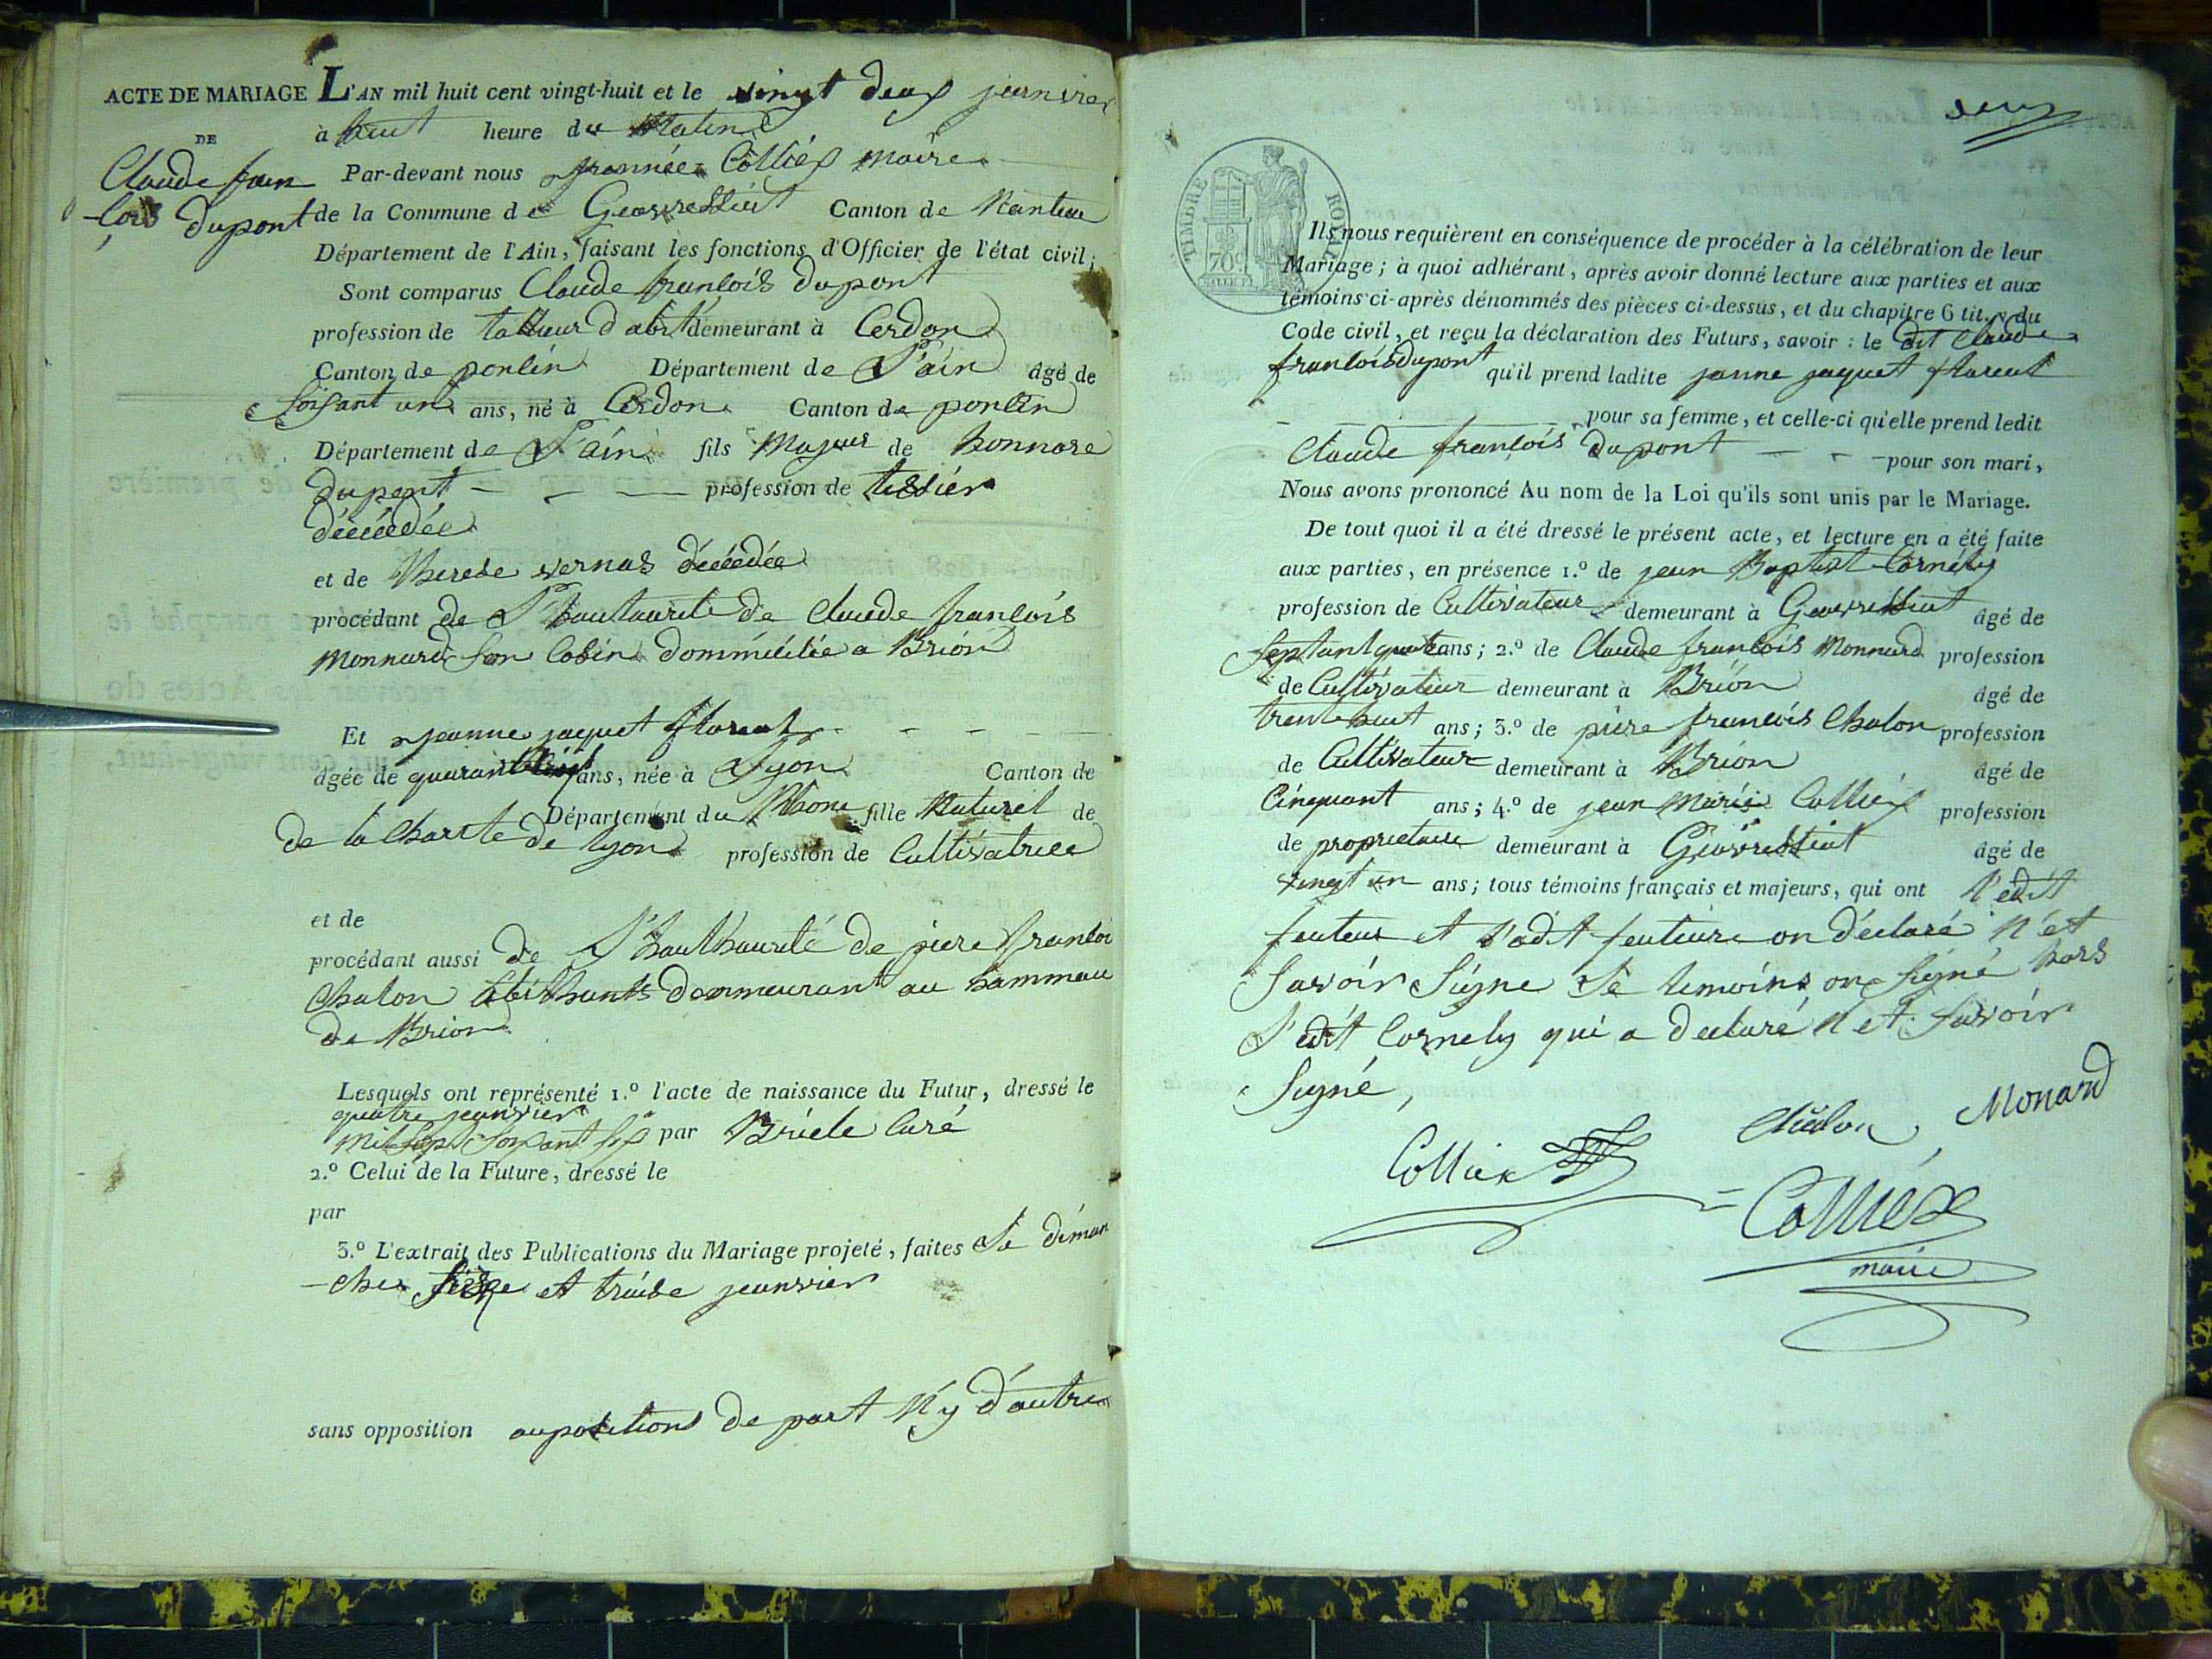 ACTE DE MARIAGE L'AN mil huit cent vingt-huit et le vingt deux jeanvier
DE
à huit heure du Matin
Claude fran Par-devant nous Colliex Maire
-cois dupont de la Commune de Geovressiat Canton de Nantua
Département de l'Ain, faisant les fonctions d'Officier de l'état civil;
Sont comparus Claude francois dupont
profession de tallieur d'abit demeurant à Cerdon
Canton de poncin Département de l'ain âgé de
soisant un ans, né à Cerdon Canton de poncin
Département de l'ain fils Majeur de honnore
dupont - - - profession de tissier
décéédée
et de therese vernas décéédée
procédant de l'hautaurité de Claude francois
Monnard son Cosin dommicilié a Brion
Et jeanne jaquet florent - - - - -
âgée de ans, née à Lyon Canton de
Département du Rhone fille Naturel de
de la Charite de lyon profession de Cultivatrice
et de
procédant aussi de l'hauthaurité de piere francoi
Chalon abithants demmeurant au hammeau
de Brion
Lesquels ont représenté 1.º l'acte de naissance du Futur, dressé le
quatre jeanvier
mil sept soixant six par Briele Curé
2.º Celui de la Future, dressé le
par
3.º L'extrait des Publications du Mariage projeté, faites le diman
-che et traise jeanvier
sans opposition aupositions de part N'y d'autre
deux
TIMBRE ROYAL
70c
Ils nous requièrent en conséquence de procéder à la célébration de leur
Mariage; à quoi adhérant, après avoir donné lecture aux parties et aux
témoins ci-après dénommés des pièces ci-dessus, et du chapitre 6 tit. v du
Code civil, et reçu la déclaration des Futurs, savoir : le dit Claude
francois dupont qu'il prend ladite janne jaquet florent
- pour sa femme, et celle-ci qu'elle prend ledit
Claude francois dupont - - - pour son mari,
Nous avons prononcé Au nom de la Loi qu'ils sont unis par le Mariage.
De tout quoi il a été dressé le présent acte, et lecture en a été faite
aux parties, en présence 1.º de jean Baptist Cornély
profession de Cultivateur demeurant à Geovressiat âgé de
septant quatre ans; 2.º de Claude francois Monnard profession
de Cultivateur demeurant à Brion âgé de
trente huit ans; 3.º de piere francois Chalon profession
de Cultivateur demeurant à Brion âgé de
Cinquant ans; 4.º de jean Marie Colliex profession
de proprietaire demeurant à Géovressiat âgé de
vingt un ans; tous témoins français et majeurs, qui ont l'edit
feuteur et l'adit feuteure on déclaré N'et
savoir Signe Le temoins on Signé hors
l'edit Cornely qui a declaré N'et savoir
Signé,
Chalon, Monard
Colliex
Colliex
maire